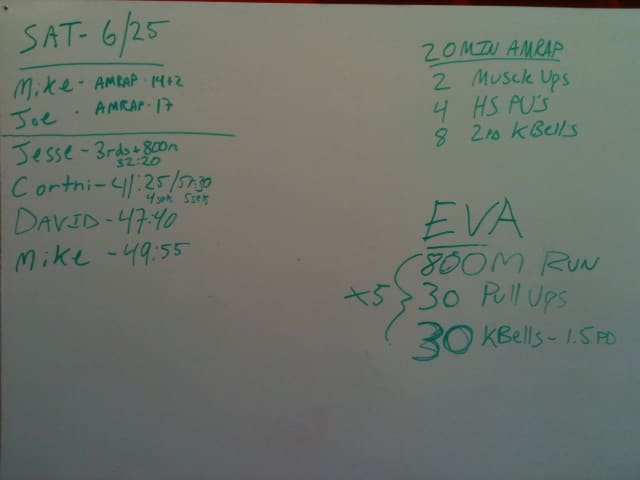 SAT- 6/25
Mike - AMRAP · 14+2
Joe · AMRAP · 17
Jesse - 3rds + 800m
32:20
Cortni - 41:25/57:30
4sets 5sets
DAVID - 47:40
Mike - 49:55
20 MIN AMRAP
2 Muscle Ups
4 HS PU's
8 2PD KBell's
EVA
800M RUN
x5 30 Pull Ups
30 KBells - 1.5 PD